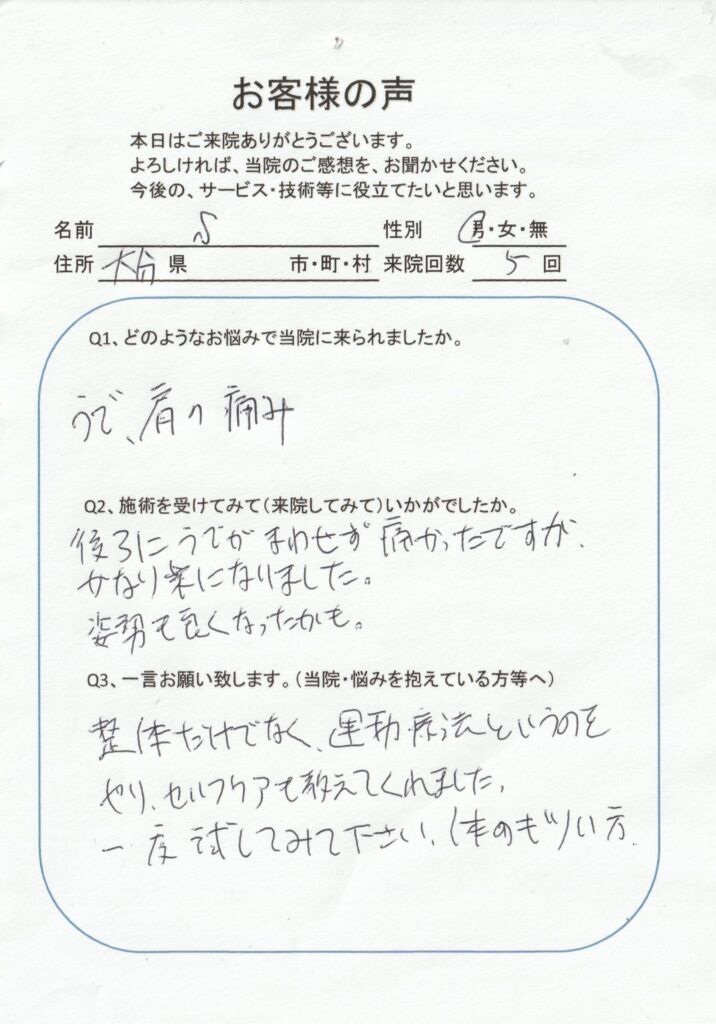 お客様の声
本日はご来院ありがとうございます。
よろしければ、当院のご感想を、お聞かせください。
今後の、サービス・技術等に役立てたいと思います。
名前 S 性別 男・女・無
住所 大分 県 市・町・村 来院回数 5 回
Q1、どのようなお悩みで当院に来られましたか。
うで、肩の痛み
Q2、施術を受けてみて(来院してみて)いかがでしたか。
後ろにうでがまわせず痛かったですが、
かなり楽になりました。
姿勢も良くなったかも。
Q3、一言お願い致します。(当院・悩みを抱えている方等へ)
整体だけでなく、運動療法というのを
やり、セルフケアも教えてくれました。
一度試してみて下さい、体の方